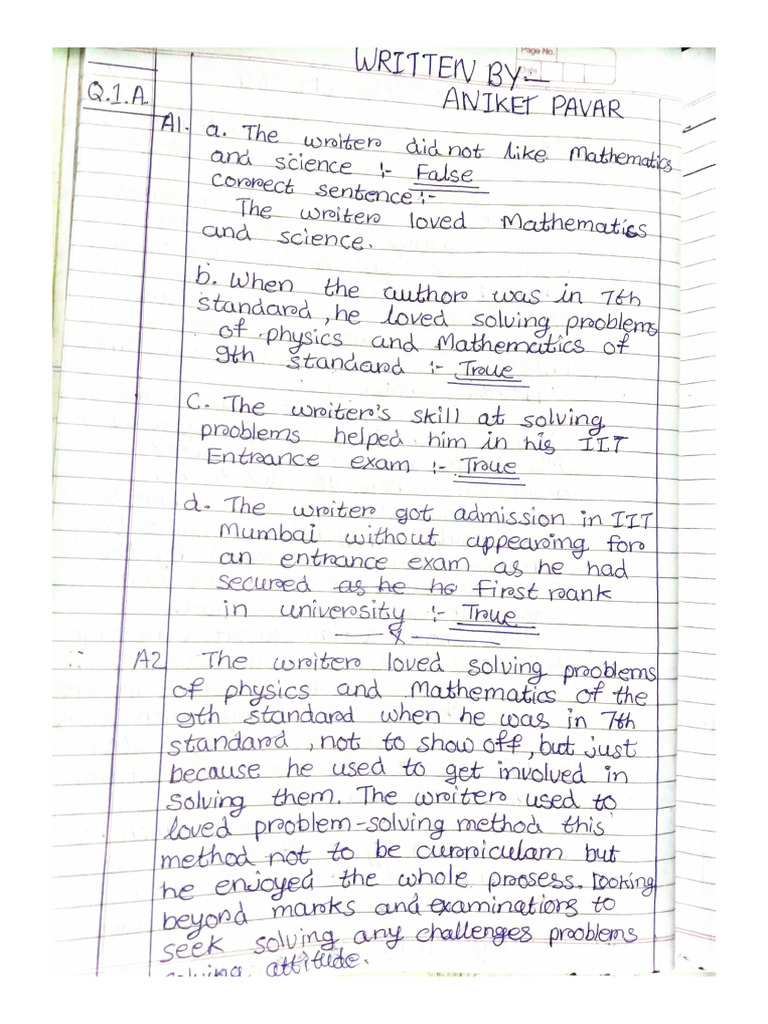 Page No.
WRITTEN BY:-
ANIKET PAVAR
Q.1.A.
A1. a. The writer did not like Mathematics
and science :- False
correct sentence:-
The writer loved Mathematics
and science.
b. When the author was in 7th
standard, he loved solving problems
of physics and Mathematics of
9th standard :- True
C. The writer's skill at solving
problems helped him in his IIT
Entrance exam :- True
d. The writer got admission in IIT
Mumbai without appearing for
an entrance exam as he had
secured as he ho first rank
in university :- True
A2 The writer loved solving problems
of physics and Mathematics of the
9th standard when he was in 7th
standard, not to show off, but just
because he used to get involved in
solving them. The writer used to
loved problem-solving method this
method not to be curriculam but
he enjoyed the whole prosess. Looking
beyond marks and examinations to
seek solving any challenges problems
solving attitude.